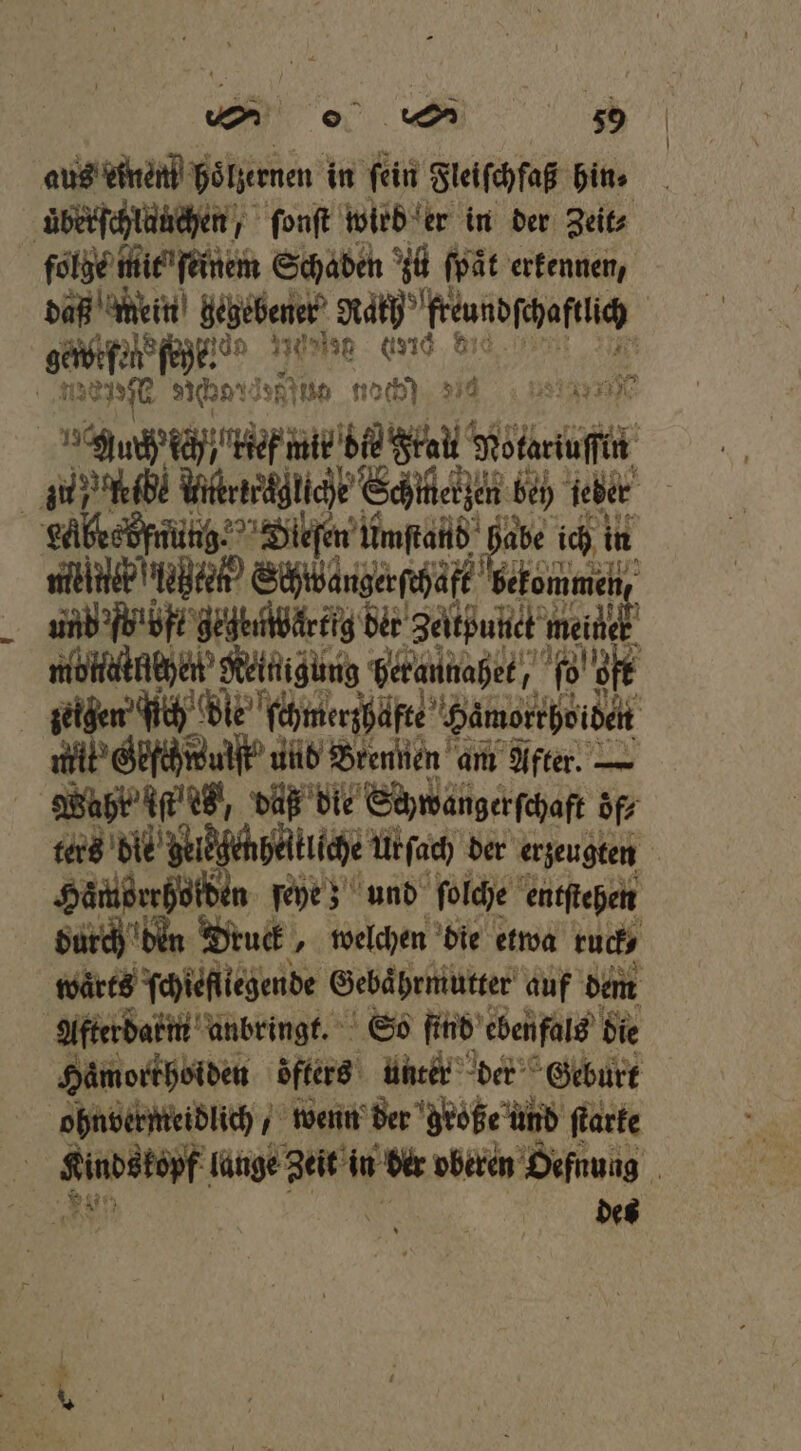 59
aus einem hoͤlzernen in ſein Fleiſchfaß hin⸗
uͤberſchlauchen, ſonſt wird er in der Zeit⸗
folge mit ſeinem Schaden zu ſpaͤt erkennen,
daß mein gegebener Rath freundſchaftlich
geweſen ſeye.
Auch ich, rief mir die Frau Notariuſſin
zu, leide unertraͤgliche Schmerzen bey jeder
Leibesoͤfnung. Dieſen Umſtand habe ich in
meiner lezten Schwangerſchaft bekommen,
und ſo oft gegenwaͤrtig der Zeitpunct meiner
monatlichen Reinigung herannahet, ſo oft
zeigen ſich die ſchmerzhafte Haͤmorrhoiden
mit Geſchwulſt und Brennen am After. —
Wahr iſt es, daß die Schwangerſchaft oͤf⸗
ters die gelegenheitliche Urſach der erzeugten
Haͤmorrhoiden ſeye; und ſolche entſtehen
durch den Druck, welchen die etwa ruck⸗
waͤrts ſchiefliegende Gebaͤhrmutter auf dem
Afterdarm anbringt. So ſind ebenfals die
Haͤmorrhoiden oͤfters unter der Geburt
ohnvermeidlich, wenn der große und ſtarke
Kindskopf lange Zeit in der oberen Oefnung
des